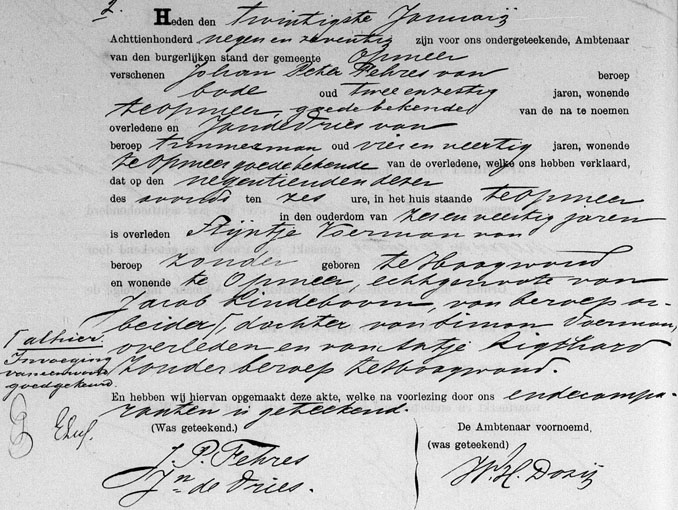 2.
Heden den twintigste Januarij
Achttienhonderd negen en zeventig zijn voor ons ondergeteekende, Ambtenaar
van den burgerlijken stand der gemeente Opmeer
verschenen Johan Peter Fehres van beroep
bode oud twee en zestig jaren, wonende
te Opmeer, goede bekende van de na te noemen
overledene en Jan de Vries van
beroep timmerman oud vier en veertig jaren, wonende
te Opmeer goede bekende van de overledene, welke ons hebben verklaard,
dat op den negentienden dezer
des avonds ten zes ure, in het huis staande te Opmeer
in den ouderdom van zes en veertig jaren
is overleden Stijntje Voerman van
beroep zonder geboren te Hoogwoud
en wonende te Opmeer, echtgenoote van
Jacob Lindeboom, van beroep ar-
beider, dochter van Simon Voerman,
overleden en van Aafje Rigthard
zonder beroep te Hoogwoud.
alhier
Invoeging
van een woord
goedgekeurd.
En hebben wij hiervan opgemaakt deze akte, welke na voorlezing door ons en de compa-
ranten is geteekend.
(Was geteekend.)
J. P. Fehres
Jn de Vries.
De Ambtenaar voornoemd,
(was geteekend)